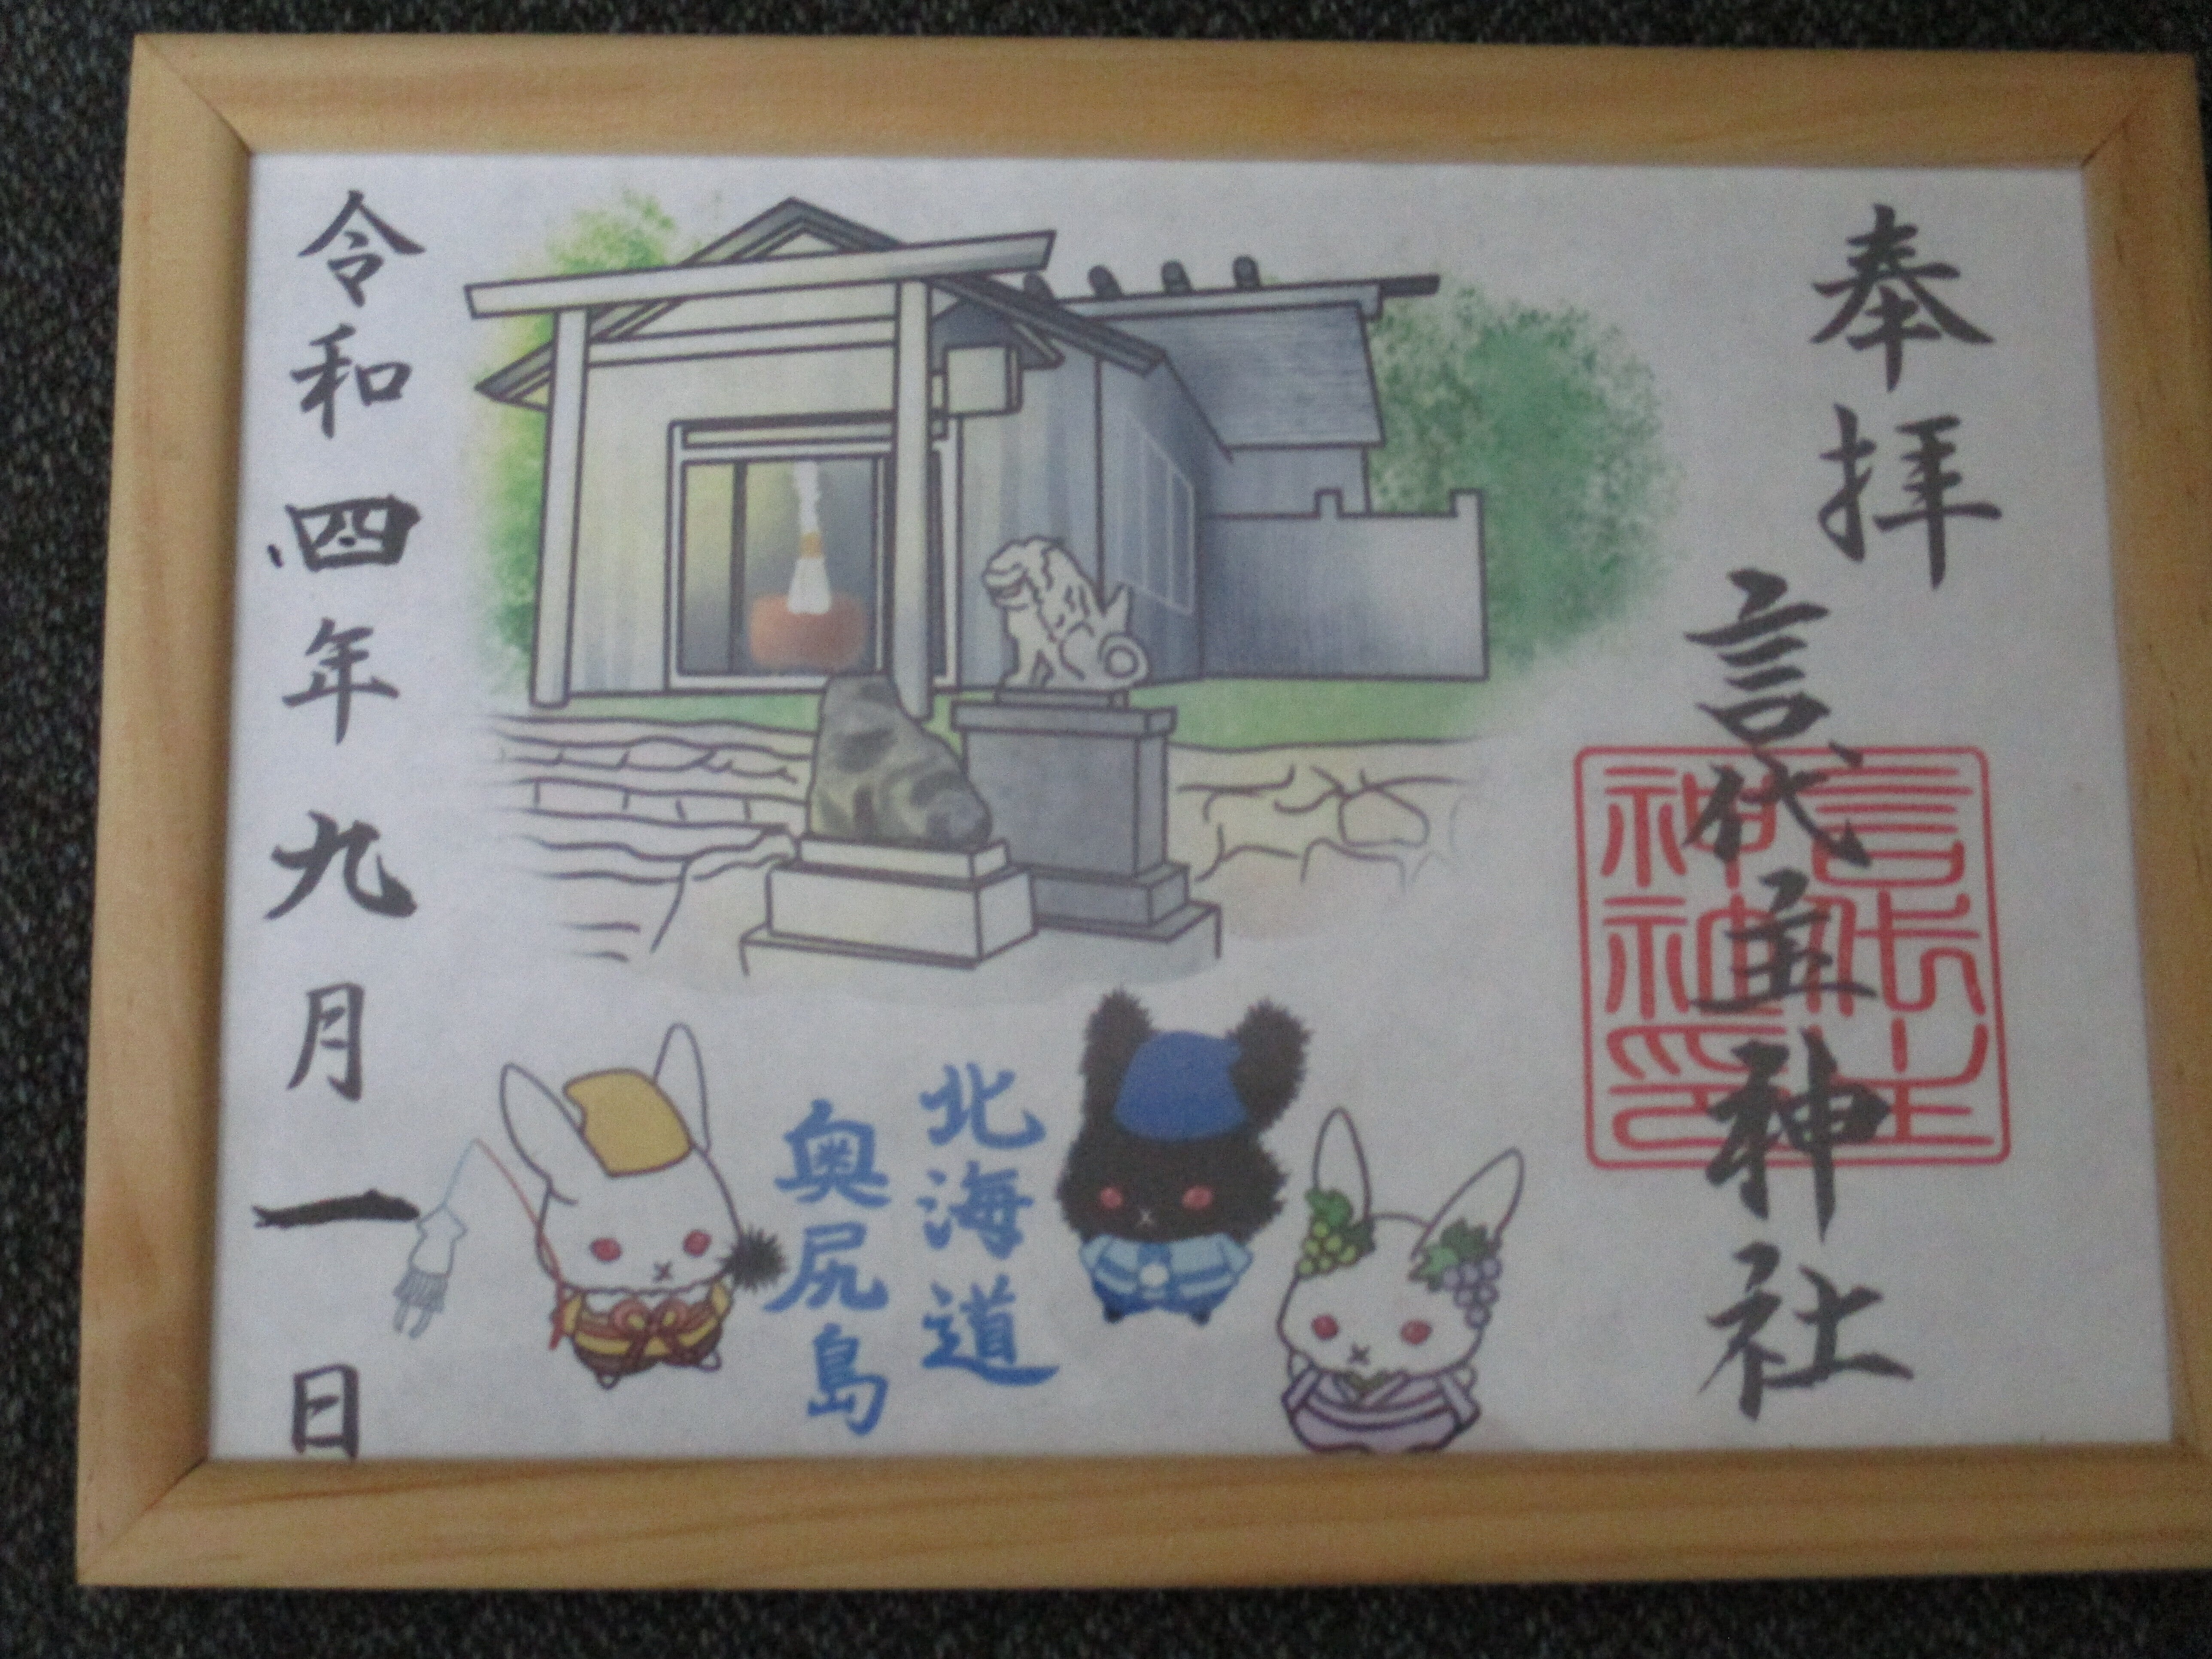 奉拝
言代主神社
言代主
神社印
北海道
奥尻島
令和四年九月一日